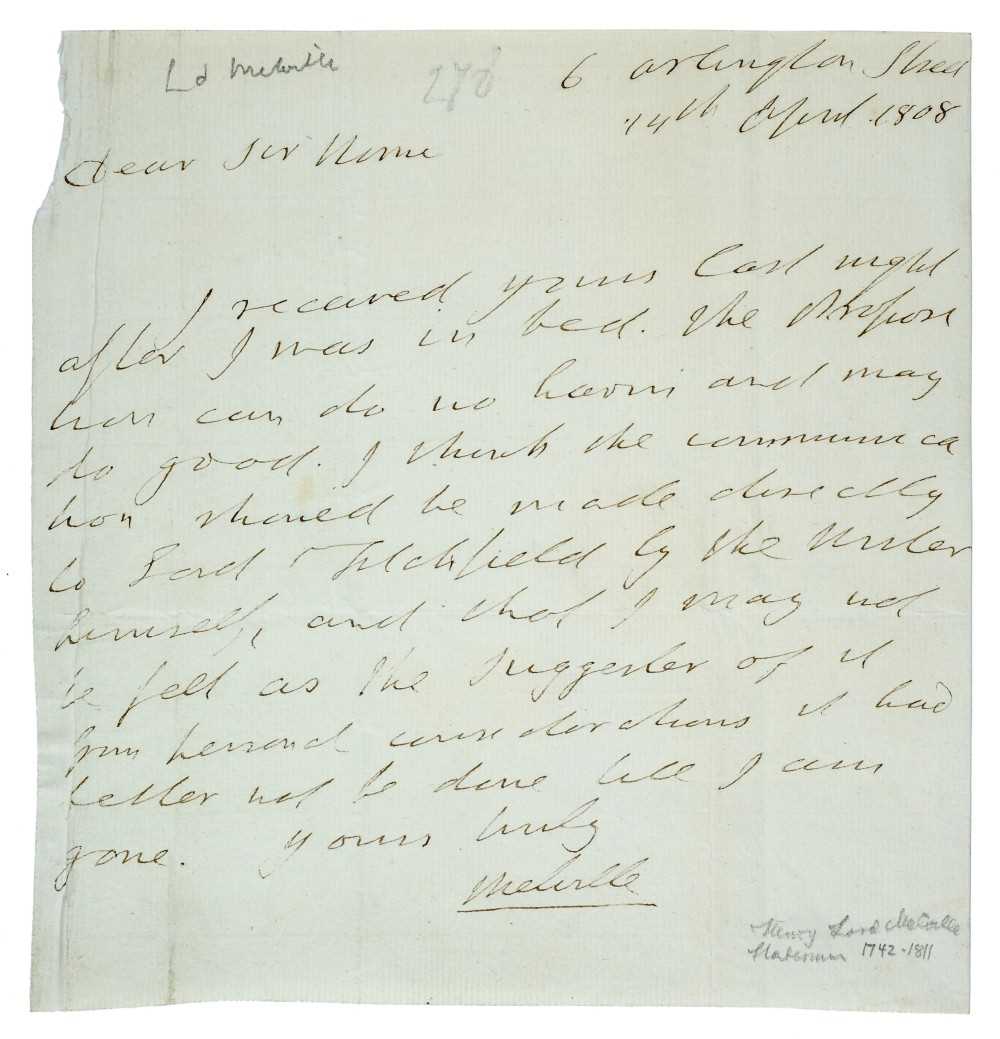 Ld Melville
278
6 Arlington Street
14th April 1808
Dear Sir Home
I received yours last night
after I was in bed. The Proposi
tion can do no harm and may
do good. I think the communica
tion should be made directly
to Lord Titchfield by the Writer
himself, and that I may not
be felt as the suggester of it
from personal considerations it had
better not be done till I am
gone. Yours truly
Melville
Henry Lord Melville
Statesman 1742-1811